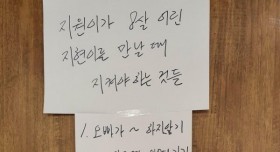 지원이가 8살 어린
지현이를 만날 때
지켜야하는 것들
1. 오빠가 ~ 하지않기